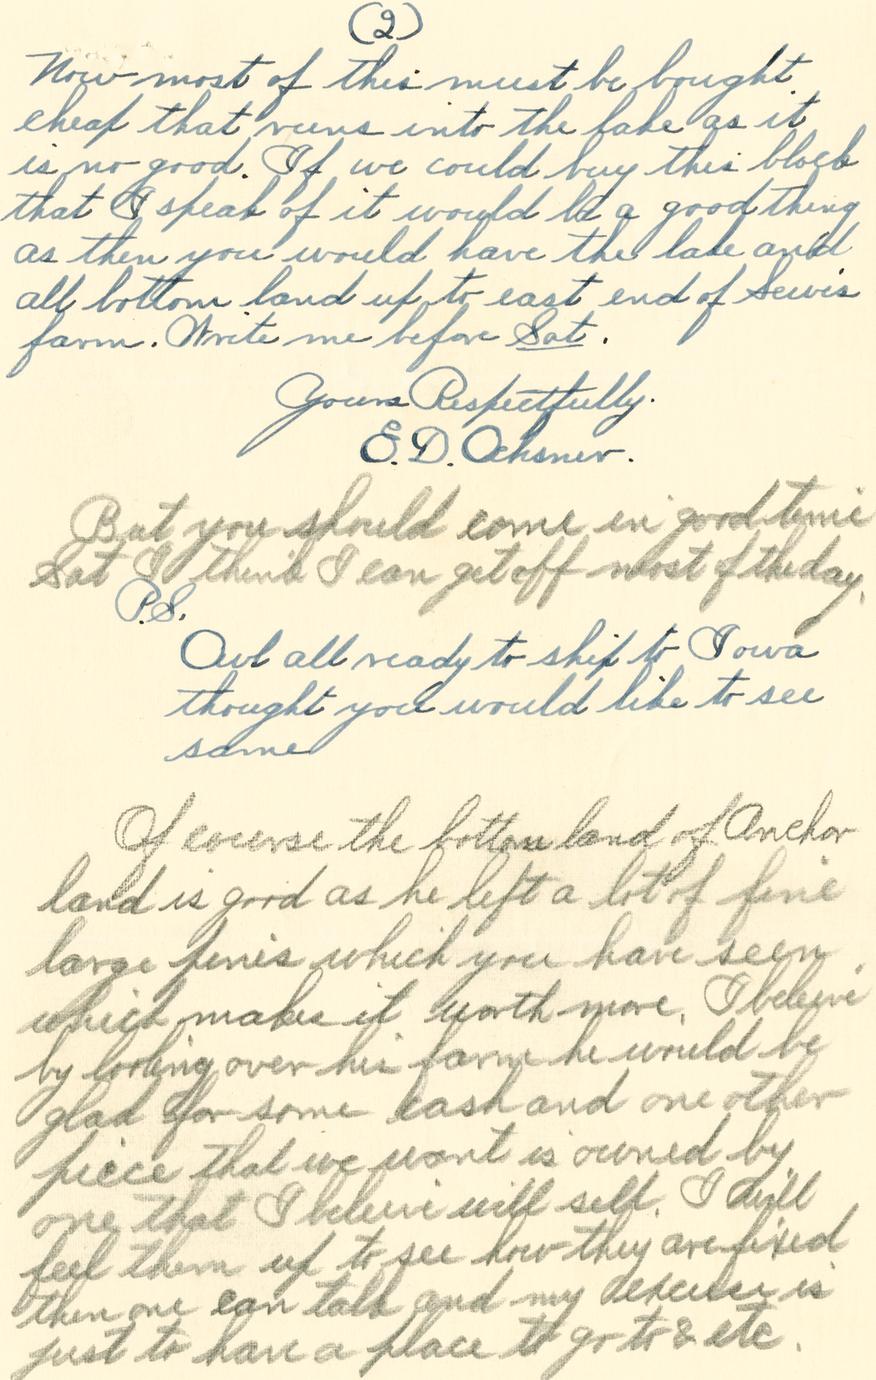 (2)
Now most of this must be bought
cheap that runs into the lake as it
is no good. If we could buy this block
that I speak of it would be a good thing
as then you would have the lake and
all bottom land up to east end of Lewis
farm. Write me before Sat.
Yours Respectfully.
E.D. Ochsner.
But you should come in good time
Sat I think I can get off most of the day.
P.S.
Owl all ready to ship to Iowa
thought you would like to see
same
Of course the bottom land of Anchor
land is good as he left a lot of fine
large pines which you have seen
which makes it worth more. I believe
by looking over his farm he would be
glad for some cash and one other
piece that we want is owned by
one that I believe will sell. I will
feel them up to see how they are fixed
then one can talk and my excuse is
just to have a place to go to & etc.